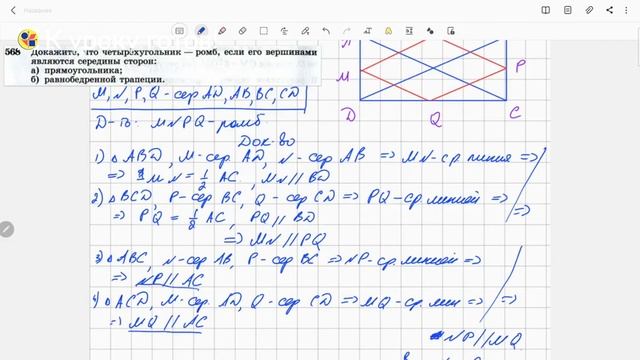 568 Докажите, что четырёхугольник — ромб, если его вершинами
являются середины сторон:
а) прямоугольника;
б) равнобедренной трапеции.
M
P
D
Q
C
M, N, P, Q - сер AD, AB, BC, CD
Д-ть: MNPQ - ромб.
Док-во
1) △ABD, M-сер. AD, N-сер AB => MN-ср. линия =>
=> MN = 1/2 AC, MN // BD
2) △BCD, P-сер BC, Q-сер CD => PQ-ср. линией =>
=> PQ = 1/2 AC, PQ // BD
=>
=> MN // PQ
3) △ABC, N-сер AB, P-сер BC => NP-ср. линией =>
=> NP // AC
4) △ACD, M-сер. AD, Q-сер CD => MQ-ср. лин =>
=> MQ // AC
=>
NP // MQ